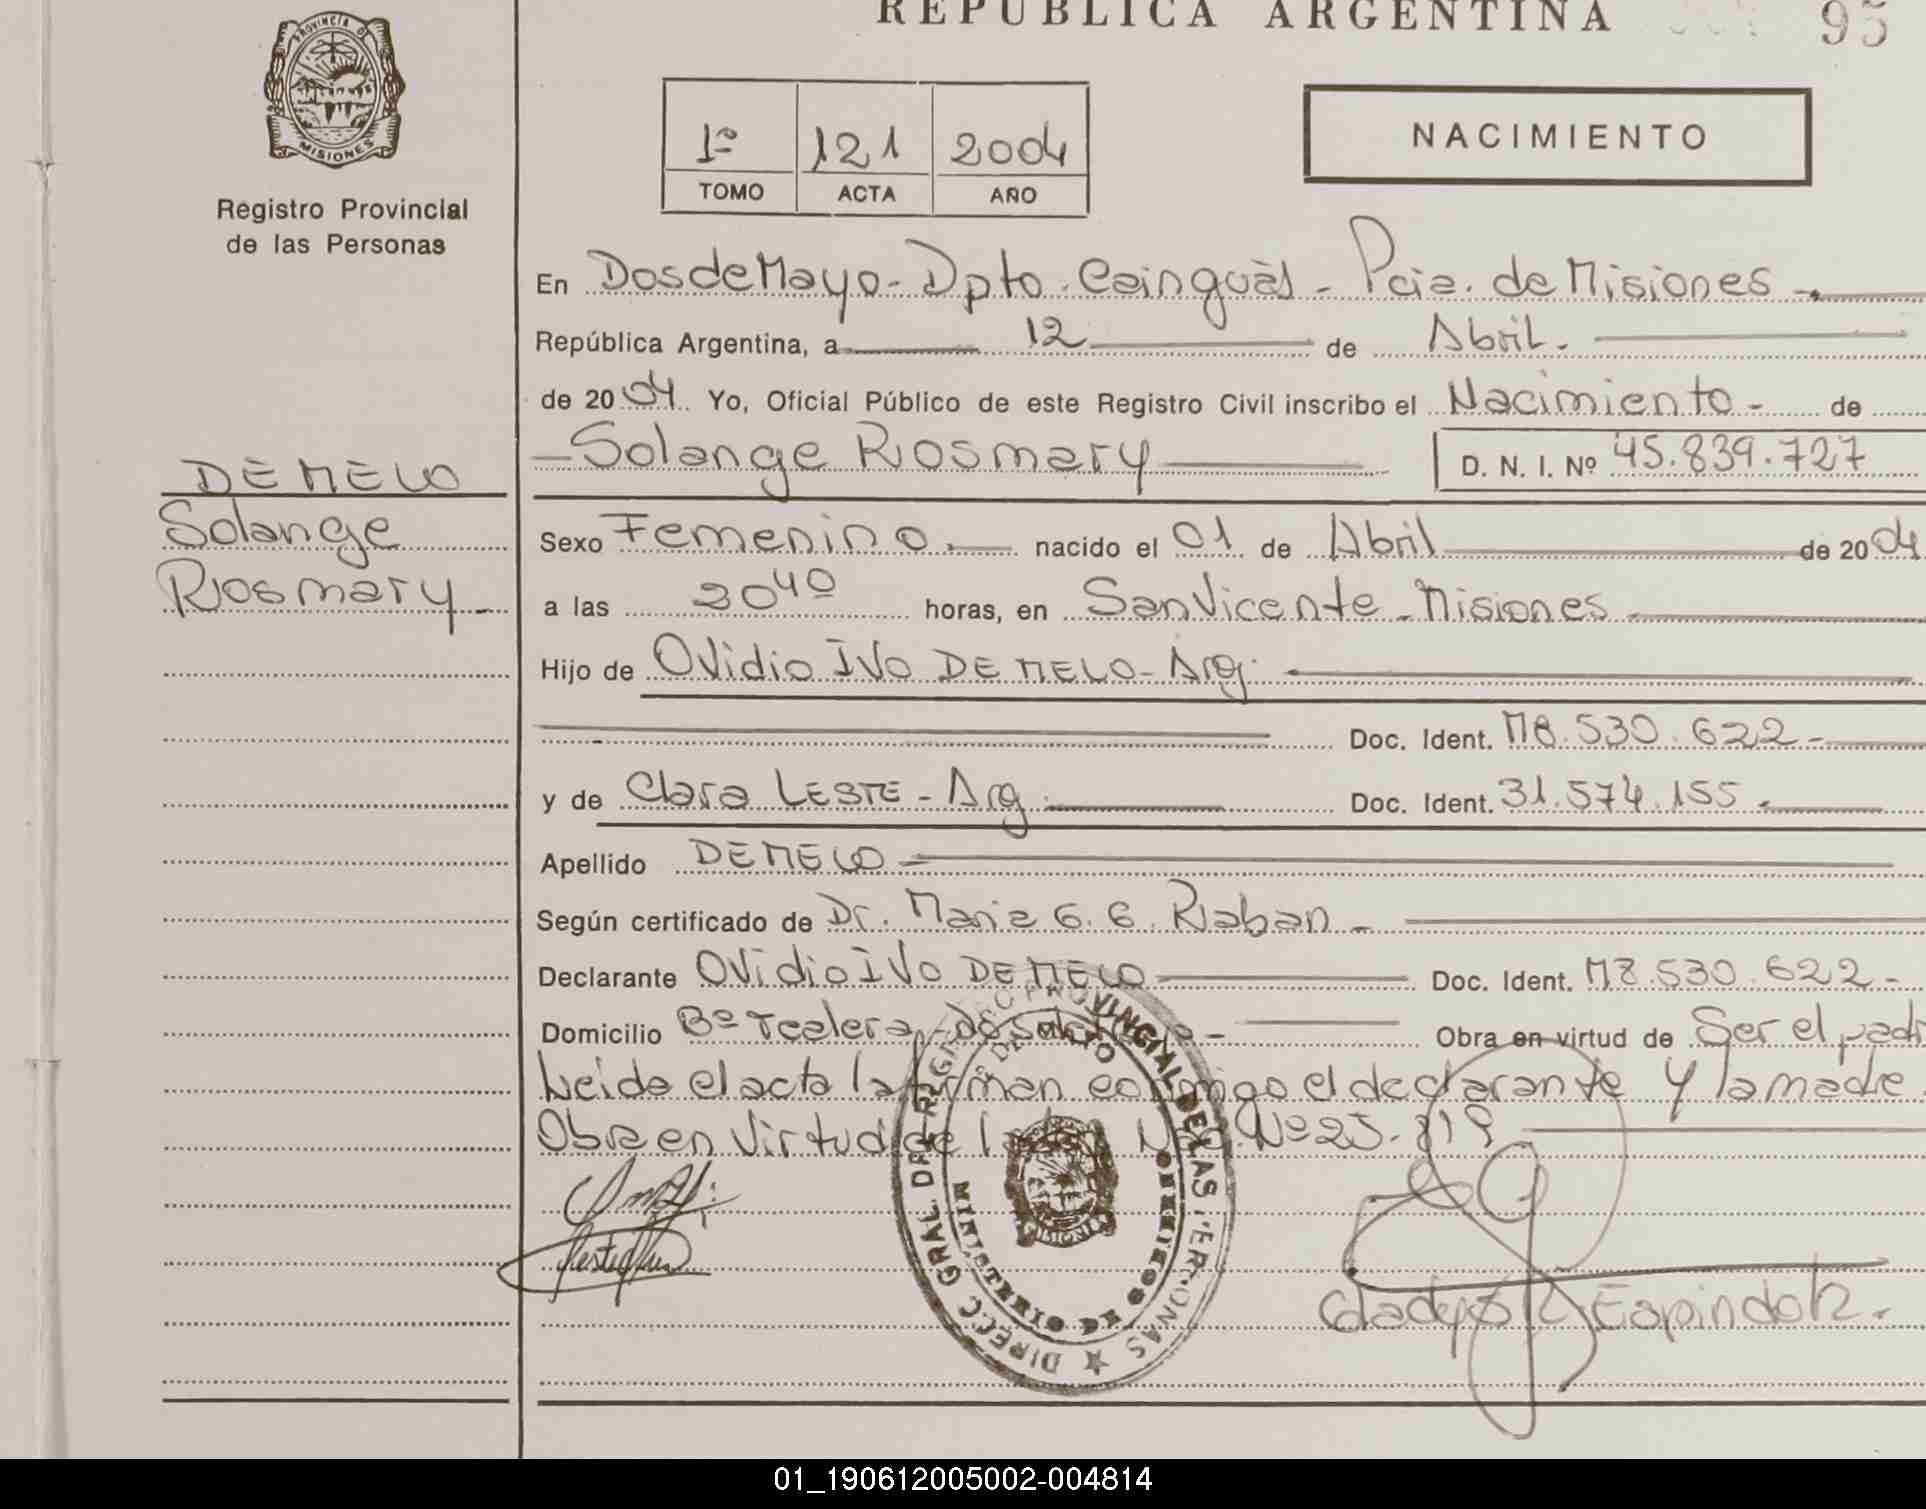 REPUBLICA ARGENTINA 95
PROVINCIA DE
MISIONES
Registro Provincial
de las Personas
1º 121 2004
TOMO ACTA AÑO
NACIMIENTO
En Dos de Mayo - Dpto. Cainguás - Pcia. de Misiones -
República Argentina, a 12 de Abril.
de 2004. Yo, Oficial Público de este Registro Civil inscribo el Nacimiento - de
- Solange Rosmary D. N. I. Nº 45.839.727
DE MELO
Solange
Rosmary -
Sexo Femenino. nacido el 01 de Abril de 2004
a las 20 40 horas, en San Vicente - Misiones
Hijo de Ovidio IVO DE MELO - Arg.
Doc. Ident. M8.530.622 -
y de Clara LESTE - Arg. Doc. Ident. 31.574.155
Apellido DE MELO
Según certificado de Dr. Maria G. G. Raban -
Declarante Ovidio IVO DE MELO Doc. Ident. M8.530.622 -
Domicilio Bº Tealera Obra en virtud de Ser el padr
Leida el acta la firman conmigo el declarante y la madre
Obra en Virtud de Nº 25.819
DIRECC. GRAL. DEL REGISTRO PROVINCIAL DE LAS PERSONAS
MINISTERIO DE GOBIERNO
MISIONES
Gladys Espindola.
01_190612005002-004814